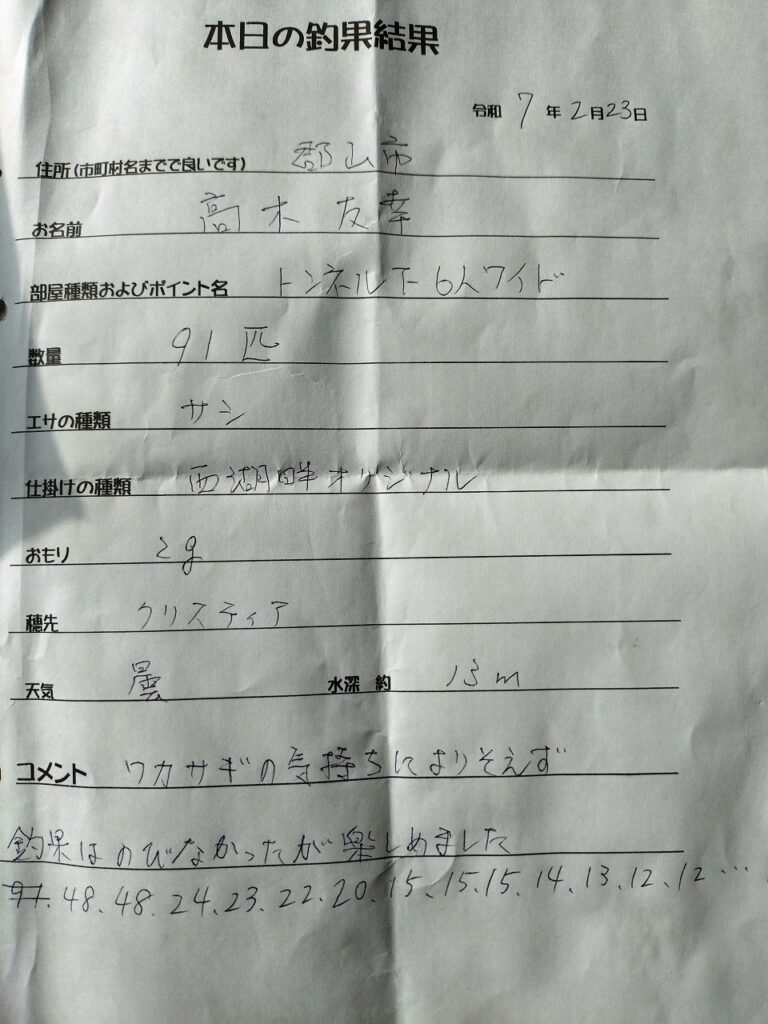 本日の釣果結果
令和 7 年 2月23日
住所(市町村名までで良いです) 郡山市
お名前 高木 友幸
部屋種類およびポイント名 トンネル下 6人ワイド
数量 91 匹
エサの種類 サシ
仕掛けの種類 西湖畔オリジナル
おもり 2g
穂先 クリスティア
天気 曇 水深 約 13m
コメント ワカサギの気持ちによりそえず
釣果はのびなかったが楽しめました
91. 48. 48. 24. 23. 22. 20. 15. 15. 15. 14. 13. 12. 12 …